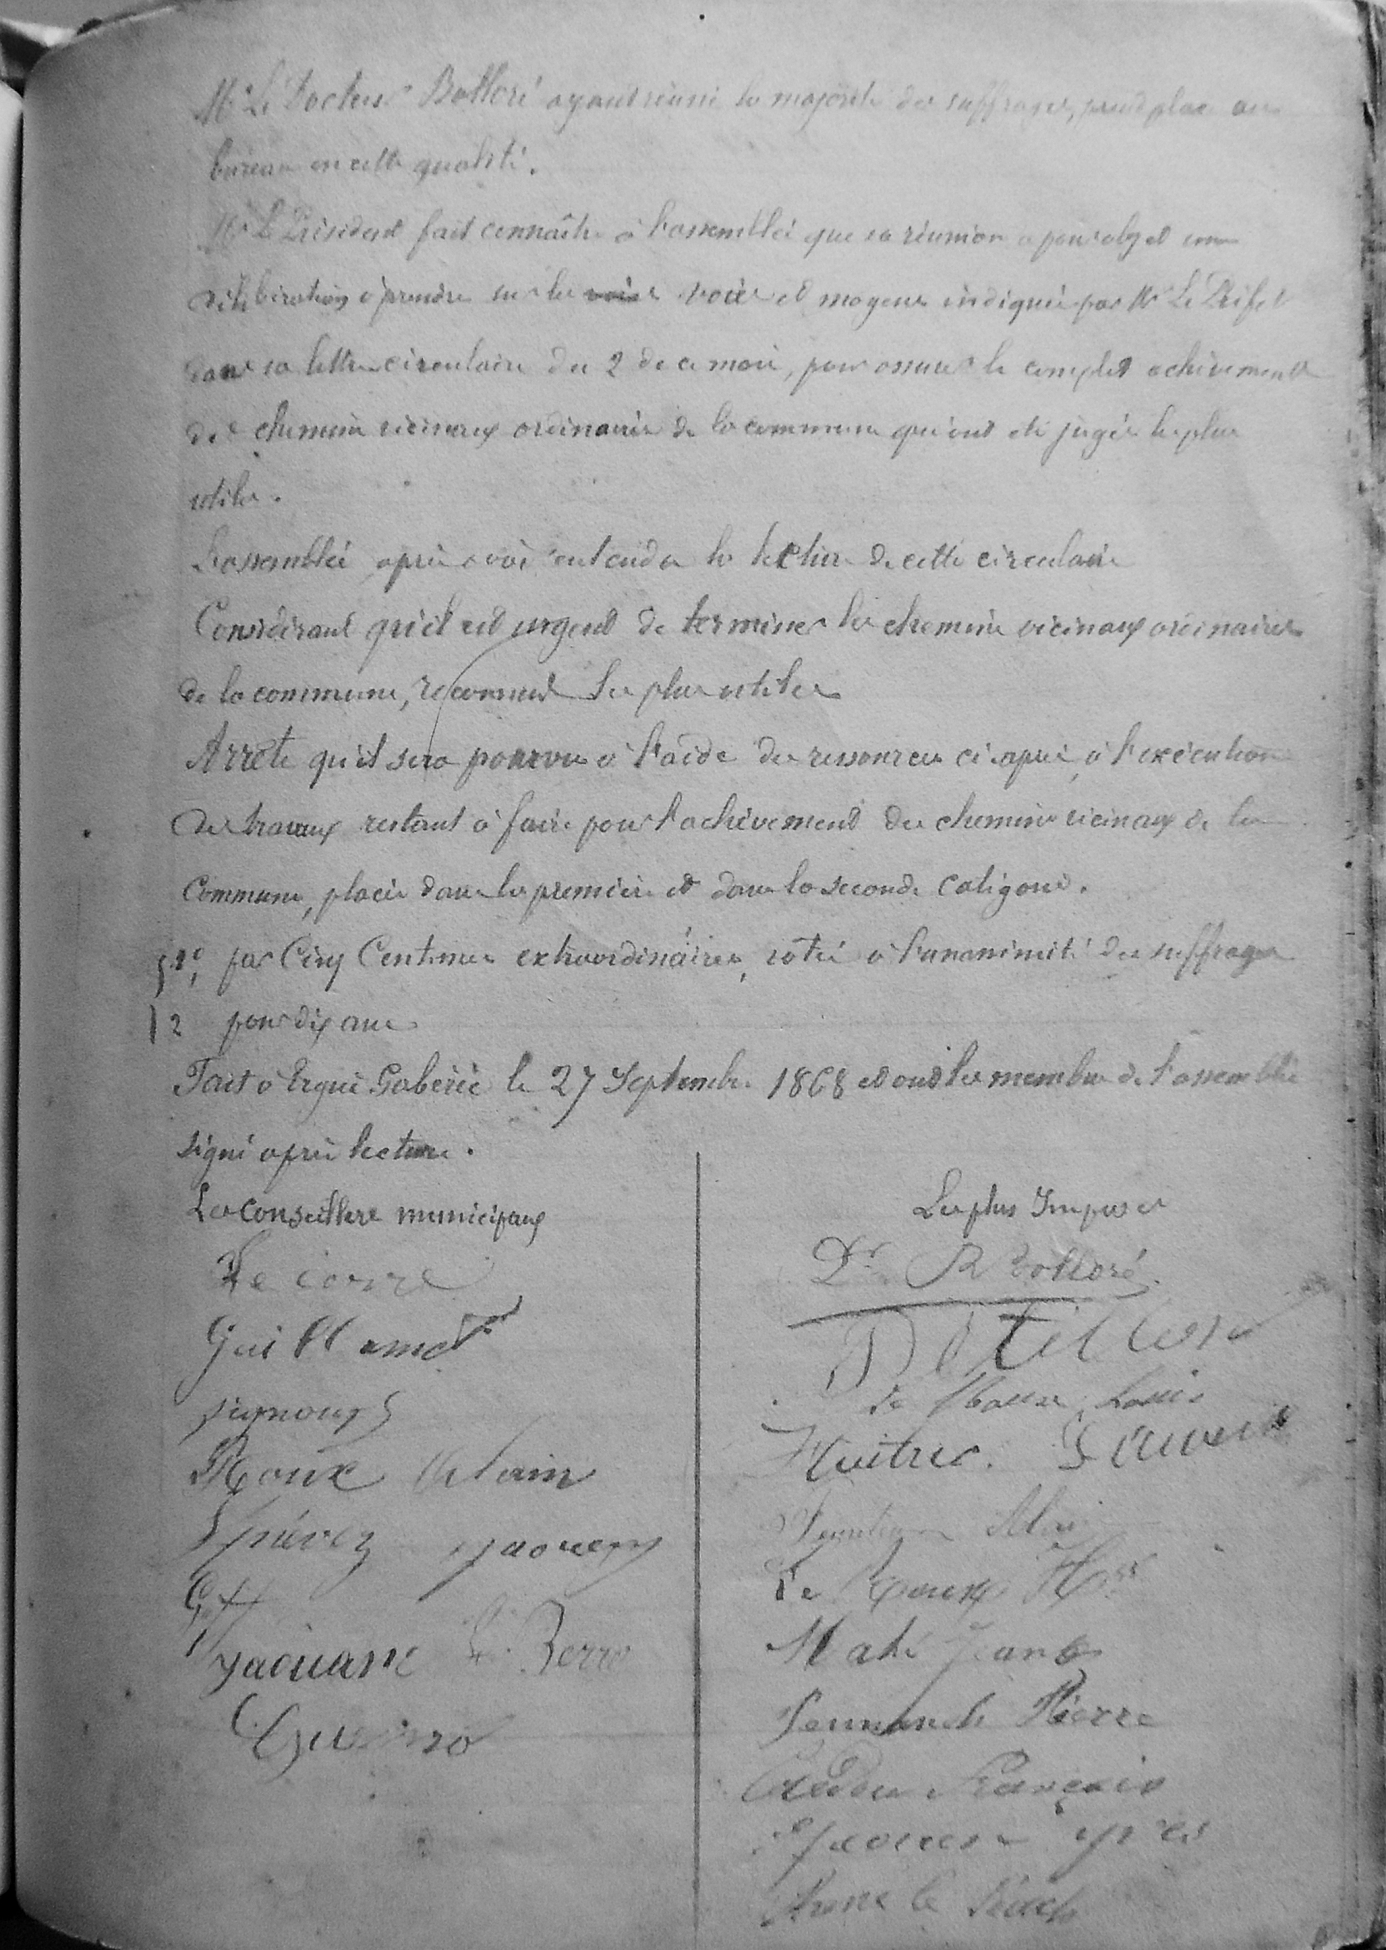 Mr Le Docteur Bolloré ayant réuni la majorité des suffrages, prend place au
bureau en cette qualité.
Mr le Président fait connaître à l'assemblée que sa réunion a pour objet une
délibération à prendre sur les voies voies et moyens indiqués par Mr Le Préfet
dans sa lettre circulaire du 2 de ce mois, pour assurer le complet achèvement
des chemins vicinaux ordinaires de la commune qui ont été jugés les plus
utiles.
L'assemblée après avoir entendu la lecture de cette circulaire
Considérant qu'il est urgent de terminer les chemins vicinaux ordinaires
de la commune, reconnus les plus utiles
Arrête qu'il sera pourvu à l'aide des ressources ci-après, à l'exécution
des travaux restant à faire pour l'achèvement des chemins vicinaux de la
Commune, placés dans la première et dans la seconde catégorie.
1° par Cinq Centimes extraordinaires, votés à l'unanimité des suffrages
2 pour dix ans
Fait à Ergué Gabéric le 27 Septembre 1868 et ont les membres de l'assemblée
signé après lecture.
Les conseillers municipaux
Le corre
Guillamet
signour
Roux Alain
yaouen
yaouanc Le Berre
Les plus Imposés
Dr R Bolloré
Louis
Huitric.
Alain
Le Roux Hre
Mahé Jean
Pennanech Pierre
Credou François
yaouen yves
René le Séach